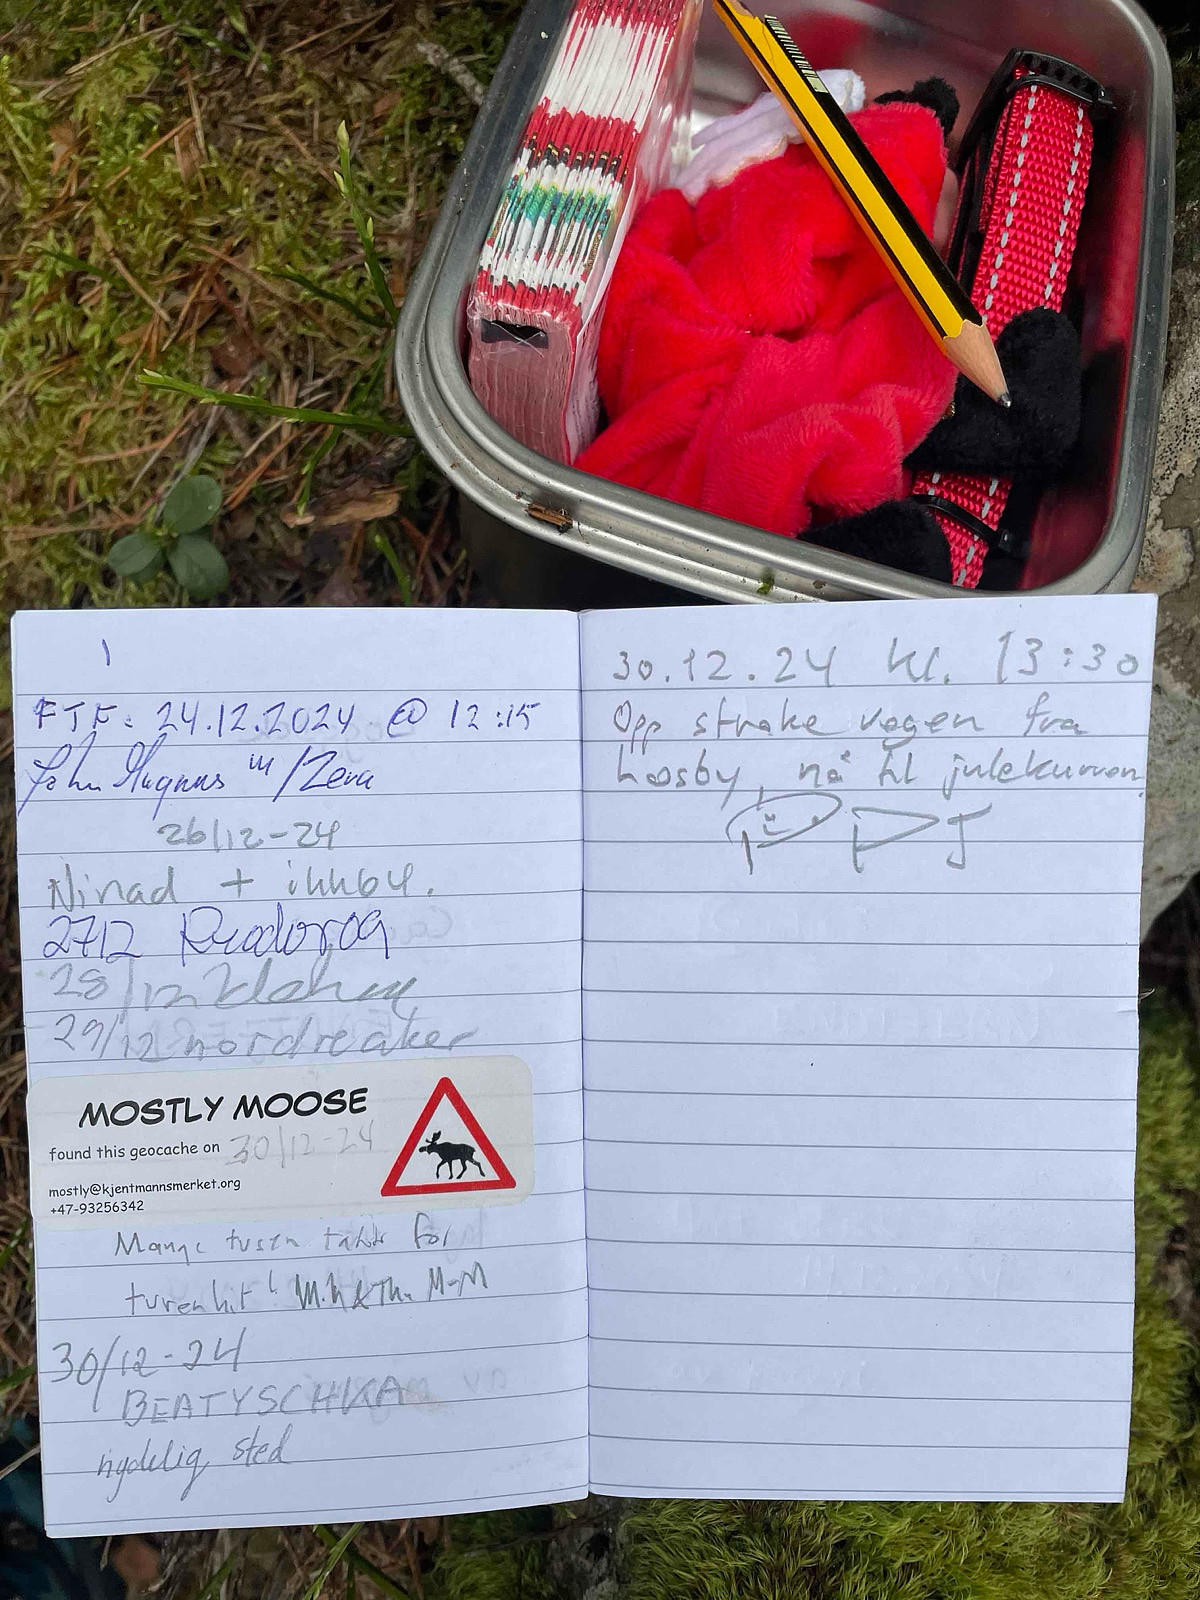 1
FTF: 24.12.2024 @ 12:15
John Magnus m/Zeva
26/12-24
Ninad + ihhb4.
27/12
28/12
29/12 nordreaker
MOSTLY MOOSE
found this geocache on 30/12-24
mostly@kjentmannsmerket.org
+47-93256342
Mange tusen takk for
turen hit!
30/12-24
BEATYSCHKA
nydelig sted
30.12.24 kl. 13:30
Opp strake vegen fra
Løsby, nå til julekurven.